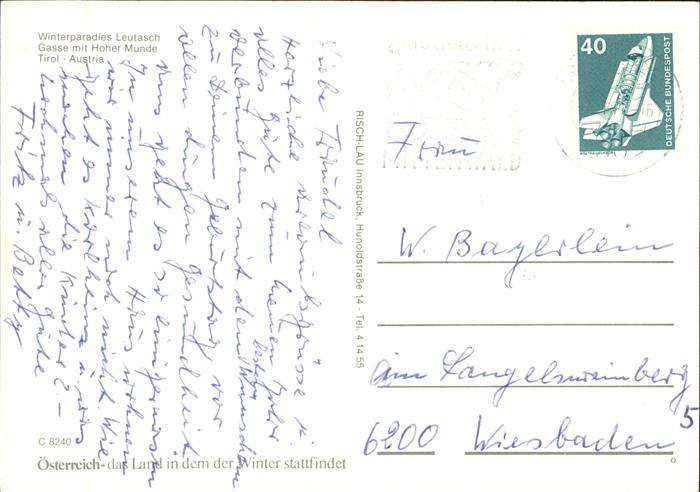 Winterparadies Leutasch
Gasse mit Hoher Munde
Tirol - Austria
Liebe Traudel
Herzliche Urlaubsgrüsse u.
alles gute zum neuen Jahr
verbunden mit den besten Wünschen
zu Deinem Geburtstag vor
allen dingen Gesundheit.
uns geht es so einigermassen
In unserem Haus wohnen
wir immer noch nicht. Wie
geht es Karlheinz u. was
machen die Kinder? –
nochmals alles gute
Fritz u. Betty
C 8240
Österreich- das Land in dem der Winter stattfindet
RISCH-LAU Innsbruck, Hunoldstraße 14 - Tel. 4 14 55
MITTENWALD
40
DEUTSCHE BUNDESPOST
Frau
W. Bayerlein
am Langelsweinberg
5
6200 Wiesbaden